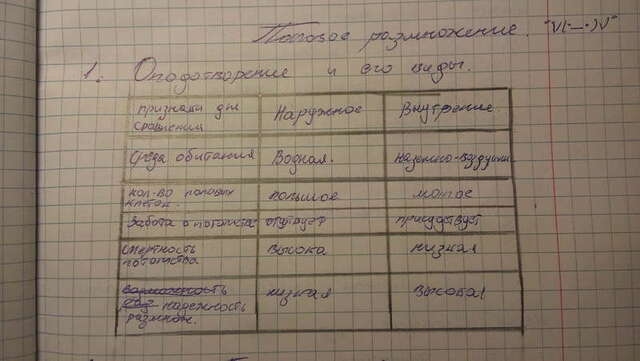 Половое размножение. "V(•—•)V"
1. Оплодотворение и его виды.
признаки для Наружное Внутренне
сравнения
Среда обитания Водная. наземно-воздушн
кол-во половых большое малое
клеток.
Забота о потомстве отсутствует присутствует
смертность высока низкая
потомства
надежность низкая высокая
размнож.